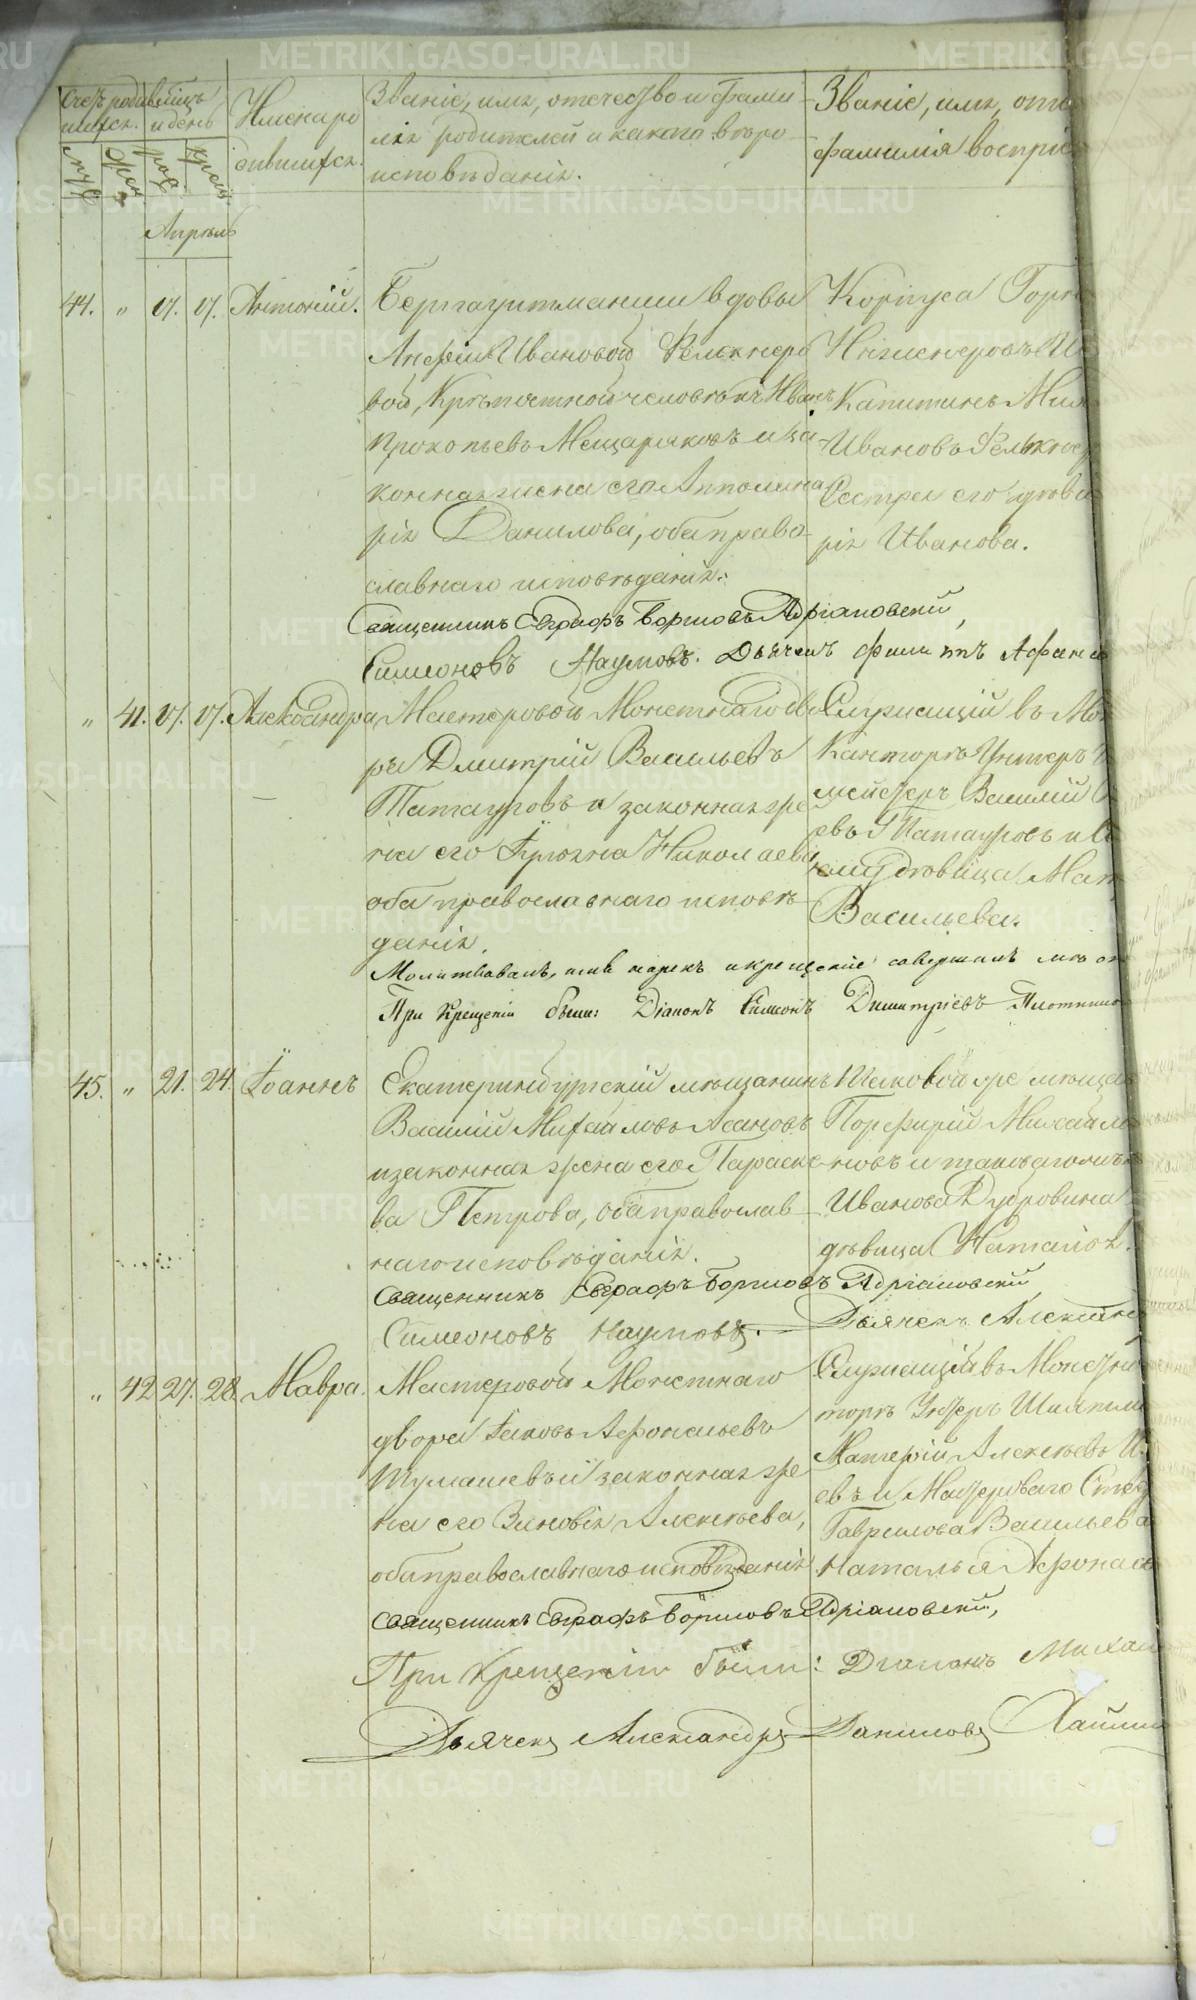 Счетъ родившихся
мѣсяцъ и день
Имена родившихся.
Званіе, имя, отечество и фамилія родителей и какого вѣроисповѣданія.
Званіе, имя, оте
фамилія воспріе
Апрѣль
44. " 17. 17. Антоній.
Бергауптманши вдовы
Ивановой Фелькнеро
вой, Крѣпостной человѣкъ Иванъ
Прокопьевъ Мещаряковъ и за-
конная жена его Апполина
рія Данилова, оба право-
славнаго исповѣданія.
Корпуса Горн
Инженеровъ
Капитанъ
Ивановъ Фелькнер
Сестра его
рія Иванова.
Священникъ Евграфъ Борисовъ Адріановскій,
Симеоновъ Наумовъ. Дьячекъ Филиппъ Афанас
" 41. 17. 17. Александра
Мастеровой Монетнаго дво
ра Дмитрій Васильевъ
Татауровъ и законная же
на его Іуліана Николаева
оба православнаго исповѣ
данія.
Служащій въ Мон
Канторѣ Унтеръ
мейстеръ Василій
евъ Татауровъ и
дѣвица
Васильева.
Молитвовалъ, имя нарекъ и крещеніе совершалъ
При Крещеніи были: Діаконъ Симеонъ Димитріевъ Плотник
45. " 21. 24. Іоаннъ
Екатеринбургскій мѣщанинъ
Василій Михайловъ Асановъ
и законная жена его Параске-
ва Петрова, оба православ-
наго исповѣданія.
Таковой же мѣща
Порфирій Михайло
новъ и
Иванова Дубровина
дѣвица Наталія.
Священникъ Евграфъ Борисовъ Адріановскій,
Симеоновъ Наумовъ. Дьячекъ
" 42. 27. 28. Мавра.
Мастеровой Монетнаго
двора Іаковъ Афонасьевъ
Тумашевъ и законная же
на его Зиновія Алексѣева,
оба православнаго исповѣданія
Служащій въ Монетн
торѣ Унтеръ Шихтм
Алексѣевъ
евъ и Мастероваго
Гаврилова Васильева
Наталья Афонась
Священникъ Евграфъ Борисовъ Адріановскій,
При Крещеніи были: Діаконъ Михаи
Дьячекъ Александръ Даниловъ
METRIKI.GASO-URAL.RU